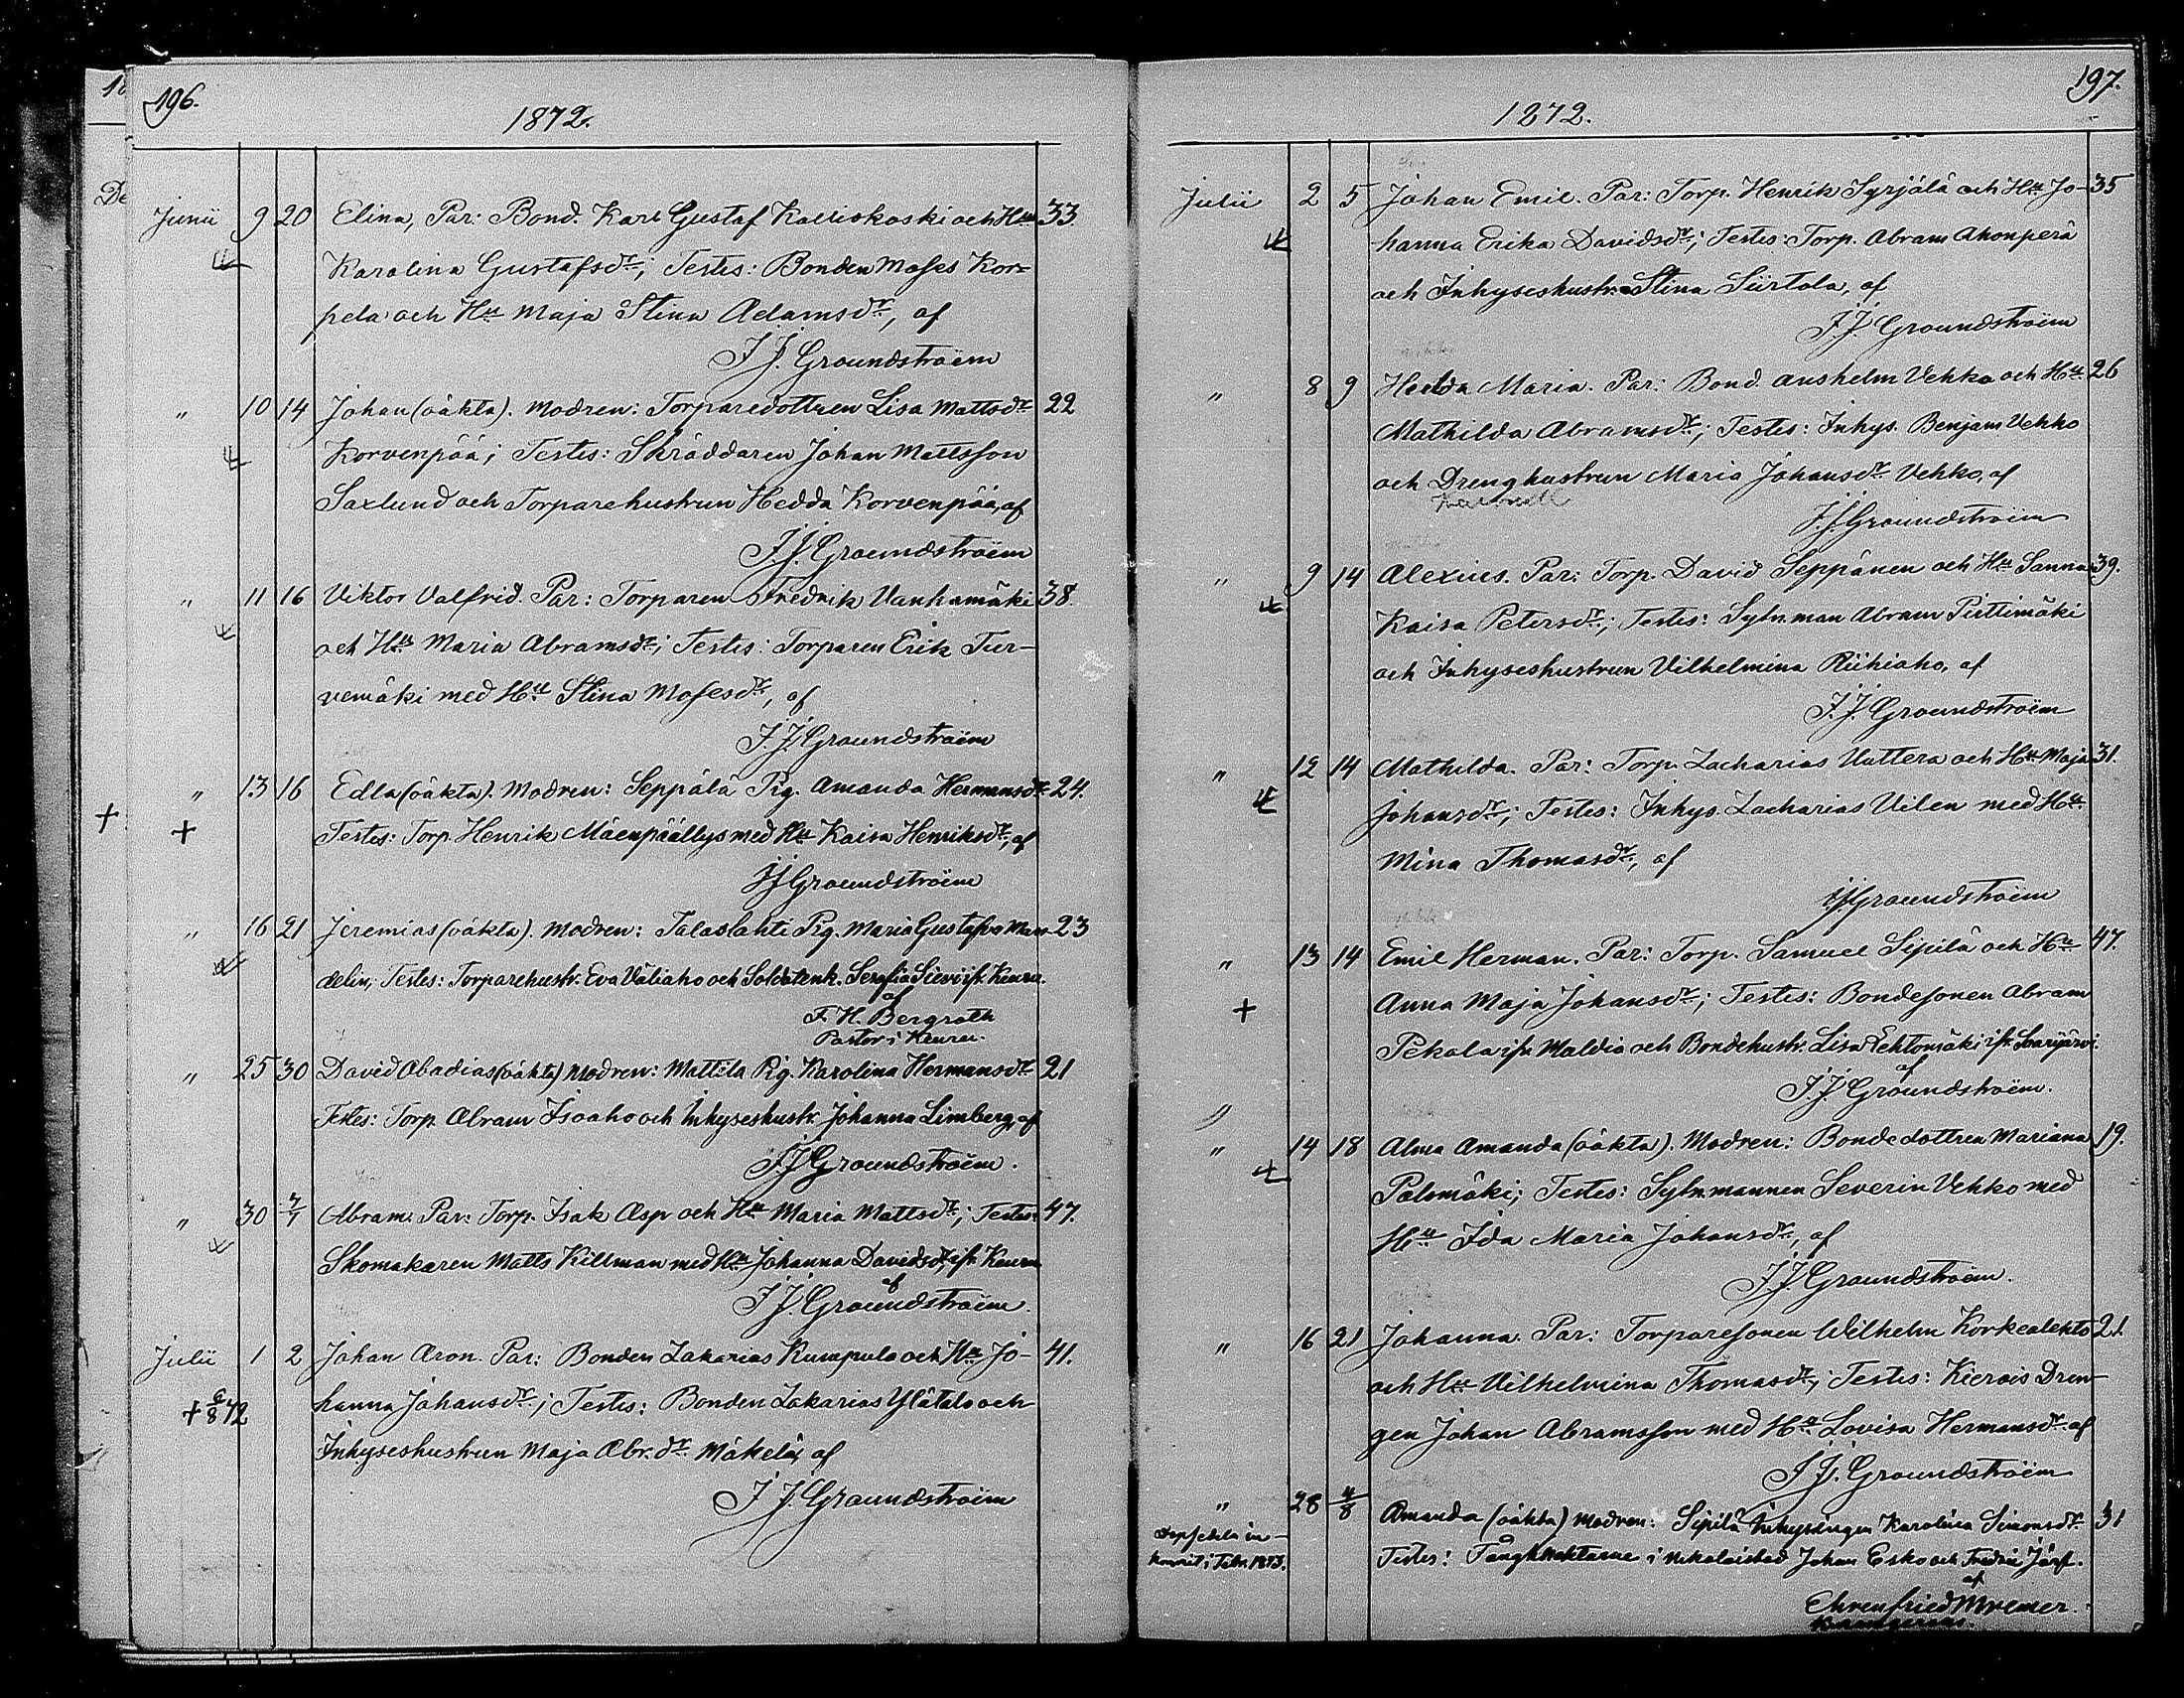 196.
1872.
Junii 9 20 Elina, Par: Bond. Karl Gustaf Kalliokoski och Hu 33.
Karolina Gustafsdr; Testes: Bonden Moses Kor=
pela och Hu Maja Stina Adamsdr, af
J. J. Groundstroëm
" 10 14 Johan (oäkta). Modren: Torparedottren Lisa Mattsdr 22
Korvenpää; Testes: Skräddaren Johan Mattsson
Saxlund och Torparehustrun Hedda Korvenpää, af
J. J. Groundstroëm
" 11 16 Viktor Valfrid. Par: Torparen Fredrik Vanhamäki 38.
och Hu Maria Abramsdr; Testes: Torparen Erik Tur-
vemäki med Hu Stina Mosesdr, af
J. J. Groundstroëm
" 13 16 Edla (oäkta). Modren: Seppälä Pig. Amanda Hermansdr 24.
+ + Testes: Torp. Henrik Mäenpäällys med Hu Kaisa Henriksdr, af
J J Groundstroëm
" 16 21 Jeremias (oäkta). Modren: Talaslahti Pig. Maria Gustafva Man- 23
delin, Testes: Torparehustr. Eva Väliaho och Soldatenk. Serafia Sievi ifr. Keuru.
af
F. H. Bergroth
Pastor i Keuru.
" 25 30 David Abadias (oäkta) Modren: Mattila Pig. Karolina Hermansdr 21
Testes: Torp. Abram Isoaho och Inhyseshustr. Johanna Limberg, af
J. J. Groundstroëm.
" 30 7/7 Abram. Par: Torp. Isak Asp och Hu Maria Mattsdr; Testes: 47.
Skomakaren Matts Killman med Hu Johanna Davidsdr, ifr. Keuru
af
J. J. Groundstroëm.
Julii 1 2 Johan Aron. Par: Bonden Zakarias Kumpula och Hu Jo- 41.
+ 6/8 72 hanna Johansdr; Testes: Bonden Zakarias Ylätalo och
Inhyseshustrun Maja Abr.dr Mäkelä, af
J. J. Groundstroëm
197.
1872.
Julii 2 5 Johan Emil. Par: Torp. Henrik Syrjälä och Hu Jo- 35
hanna Erika Davidsdr; Testes: Torp. Abram Ahonperä
och Inhyseshustr. Stina Siirtola, af
J. J. Groundstroëm
" 8 9 Hedda Maria. Par: Bond. Anshelm Vehko och Hu 26
Mathilda Abramsdr; Testes: Inhys. Benjam. Vehko
och Drenghustrun Maria Johansdr Vehko, af
J. J. Groundstroëm
" 9 14 Alexius. Par: Torp. David Seppänen och Hu Sanna 39.
Kaisa Petersdr; Testes: Sytn.man Abram Piittimäki
och Inhyseshustrun Vilhelmina Riihiaho, af
J. J. Groundstroëm
" 12 14 Mathilda. Par: Torp. Zacharias Uuttera och Hu Maja 31.
Johansdr; Testes: Inhys. Zacharias Vilen med Hu
Mina Thomasdr, af
J. J. Groundstroëm
" 13 14 Emil Herman. Par: Torp. Samuel Sipilä och Hu 47.
+ Anna Maja Johansdr; Testes: Bondesonen Abram
Pekola ifr. Maldia och Bondehustr. Lisa Lehtomäki ifr. Saarijärvi.
af
J. J. Groundstroëm.
"
" 14 18 Alma Amanda (oäkta). Modren: Bondedottren Mariana 19.
Palomäki; Testes: Sytn.mannen Severin Vehko med
Hu Ida Maria Johansdr, af
J. J. Groundstroëm.
" 16 21 Johanna. Par: Torparesonen Wilhelm Korkealehto 21
och Hu Vilhelmina Thomasdr; Testes: Kierois Dren-
gen Johan Abramsson med Hu Lovisa Hermansdr af
J. J. Groundstroëm
" 28 4/8 Amanda (oäkta) Modren: Sipilä Inhysingen Karolina Simonsdr 31
Dopsedeln in-
kommit i Febr. 1873.
Testes: Fångknektarne i Nikolaistad Johan Esko och Fredric Järf.
af
Ehrenfried